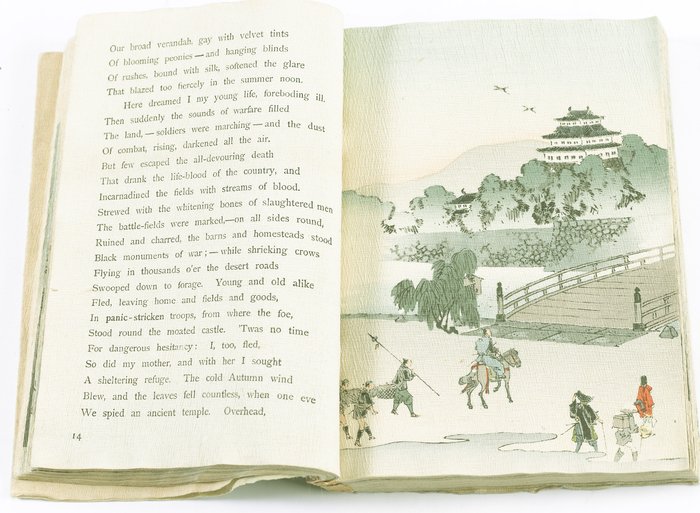 Our broad verandah, gay with velvet tints
Of blooming peonies — and hanging blinds
Of rushes, bound with silk, softened the glare
That blazed too fiercely in the summer noon.
Here dreamed I my young life, foreboding ill,
Then suddenly the sounds of warfare filled
The land, — soldiers were marching — and the dust
Of combat, rising, darkened all the air.
But few escaped the all-devouring death
That drank the life-blood of the country, and
Incarnadined the fields with streams of blood.
Strewed with the whitening bones of slaughtered men
The battle-fields were marked,—on all sides round,
Ruined and charred, the barns and homesteads stood
Black monuments of war; — while shrieking crows
Flying in thousands o'er the desert roads
Swooped down to forage. Young and old alike
Fled, leaving home and fields and goods,
In panic-stricken troops, from where the foe,
Stood round the moated castle. 'Twas no time
For dangerous hesitancy: I, too, fled,
So did my mother, and with her I sought
A sheltering refuge. The cold Autumn wind
Blew, and the leaves fell countless, when one eve
We spied an ancient temple. Overhead,
14